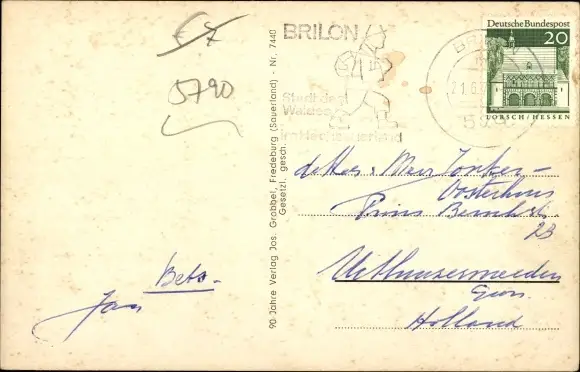 € 7
5790
BRILON
Stadt des
Waldes
im Hochsauerland
Deutsche Bundespost
20
LORSCH/HESSEN
BRILON
21.6.
90 Jahre Verlag Jos. Grobbel, Fredeburg (Sauerland) - Nr. 7440
Gesetzl. gesch.
Mevr Jonker-
Oosterhuis
Prins Bernhardstr.
23
Uithuizermeeden
Gron.
Holland
Bets.
Jan